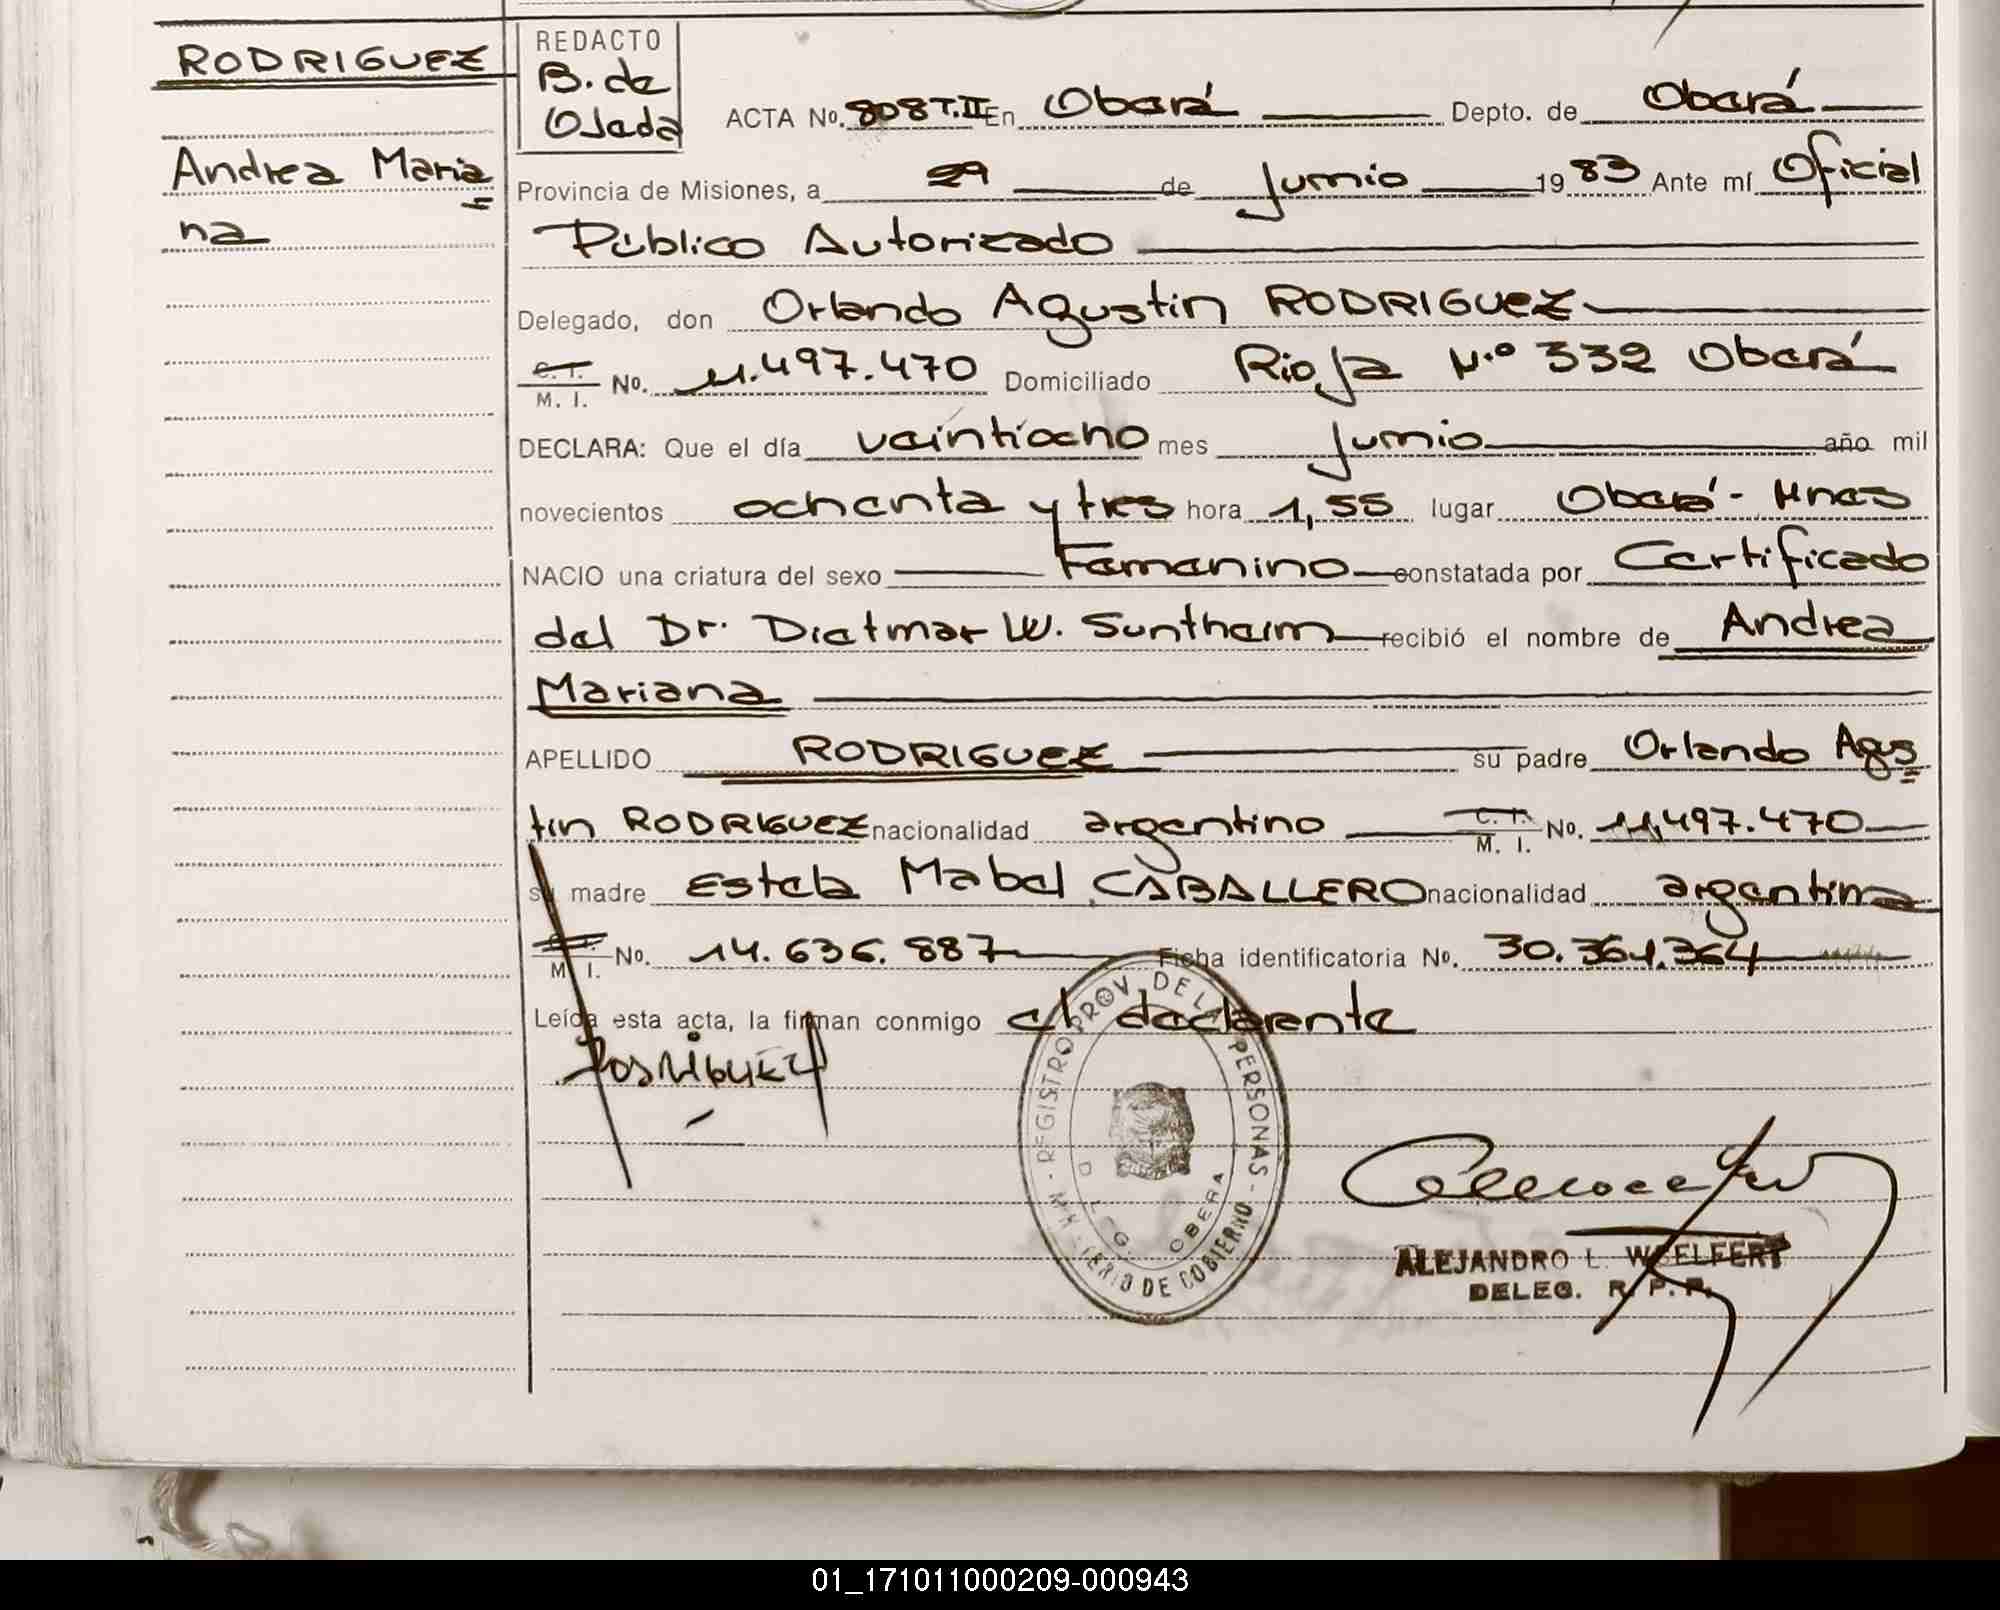 RODRIGUEZ
Andrea Maria
na
REDACTO
B. de
Ojeda
ACTA No. 808 T.II En Oberá Depto. de Oberá
Provincia de Misiones, a 29 de Junio 19 83 Ante mí Oficial
Público Autorizado
Delegado, don Orlando Agustin RODRIGUEZ
C. I. M. I. No. 11.497.470 Domiciliado Rioja N.º 332 Oberá
DECLARA: Que el día veintiocho mes Junio año mil
novecientos ochenta y tres hora 1,55 lugar Oberá - Mnes
NACIO una criatura del sexo Femenino constatada por Certificado
del Dr. Dietmar W. Suntheim recibió el nombre de Andrea
Mariana
APELLIDO RODRIGUEZ su padre Orlando Agus
tin RODRIGUEZ nacionalidad argentino C. I. M. I. No. 11,497.470
su madre Estela Mabel CABALLERO nacionalidad argentina
C. I. M. I. No. 14.636.887 Ficha identificatoria No. 30.361.364
Leída esta acta, la firman conmigo el declarente
Rodriguez
REGISTRO PROV. DE LA PERSONAS - MINISTERIO DE GOBIERNO -
DELEG. OBERA
ALEJANDRO L. WOELFERT
DELEG. R. P. P.
01_171011000209-000943